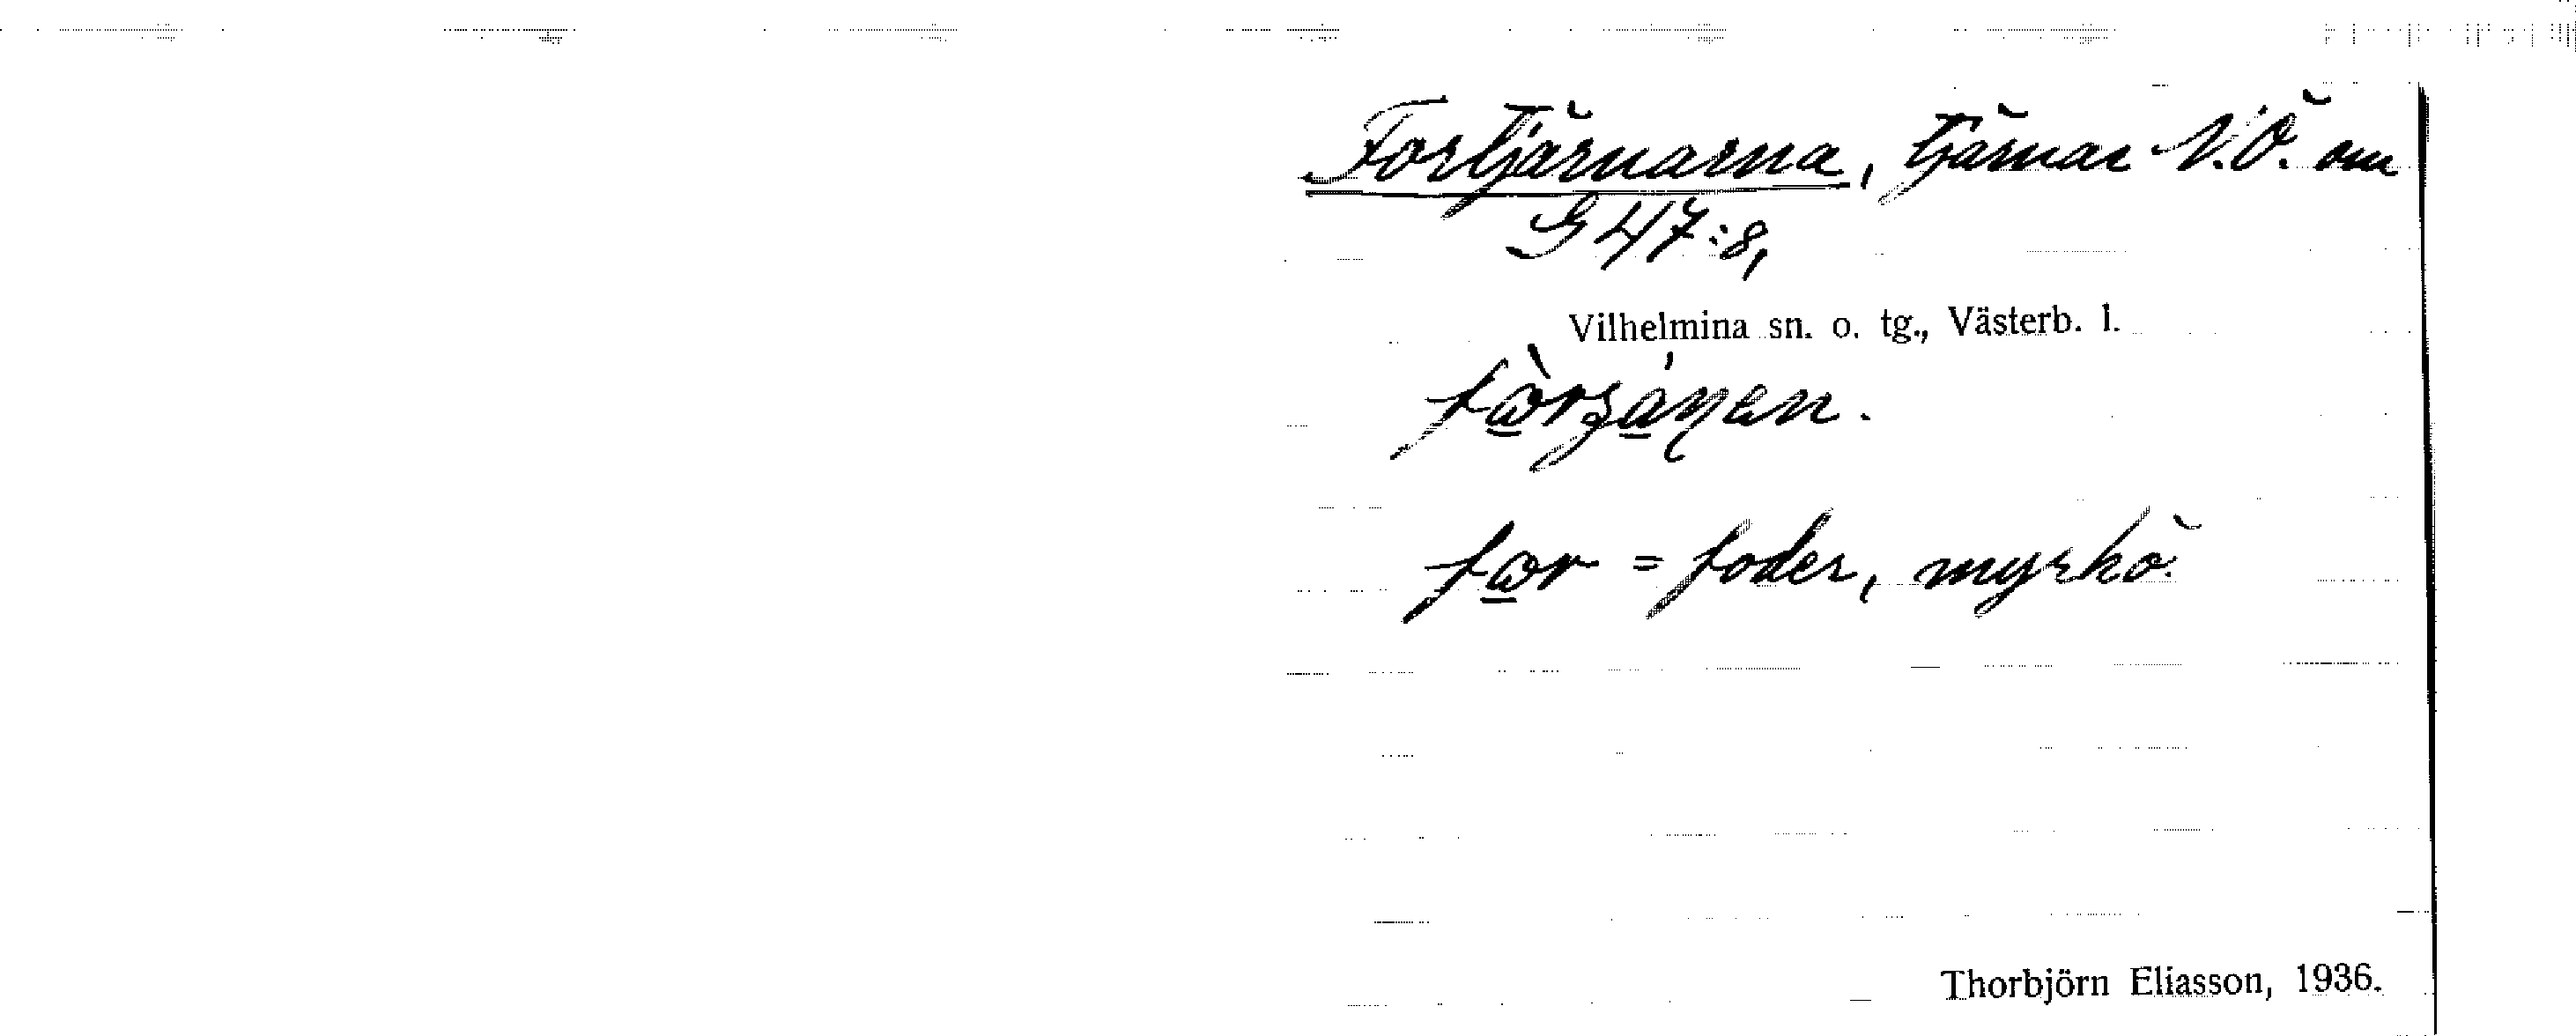 Fortjärnarna, tjärnar N.Ö. om
G 47:8,
Vilhelmina sn. o. tg., Västerb. l.
= foder, myrhö.
Thorbjörn Eliasson, 1936.